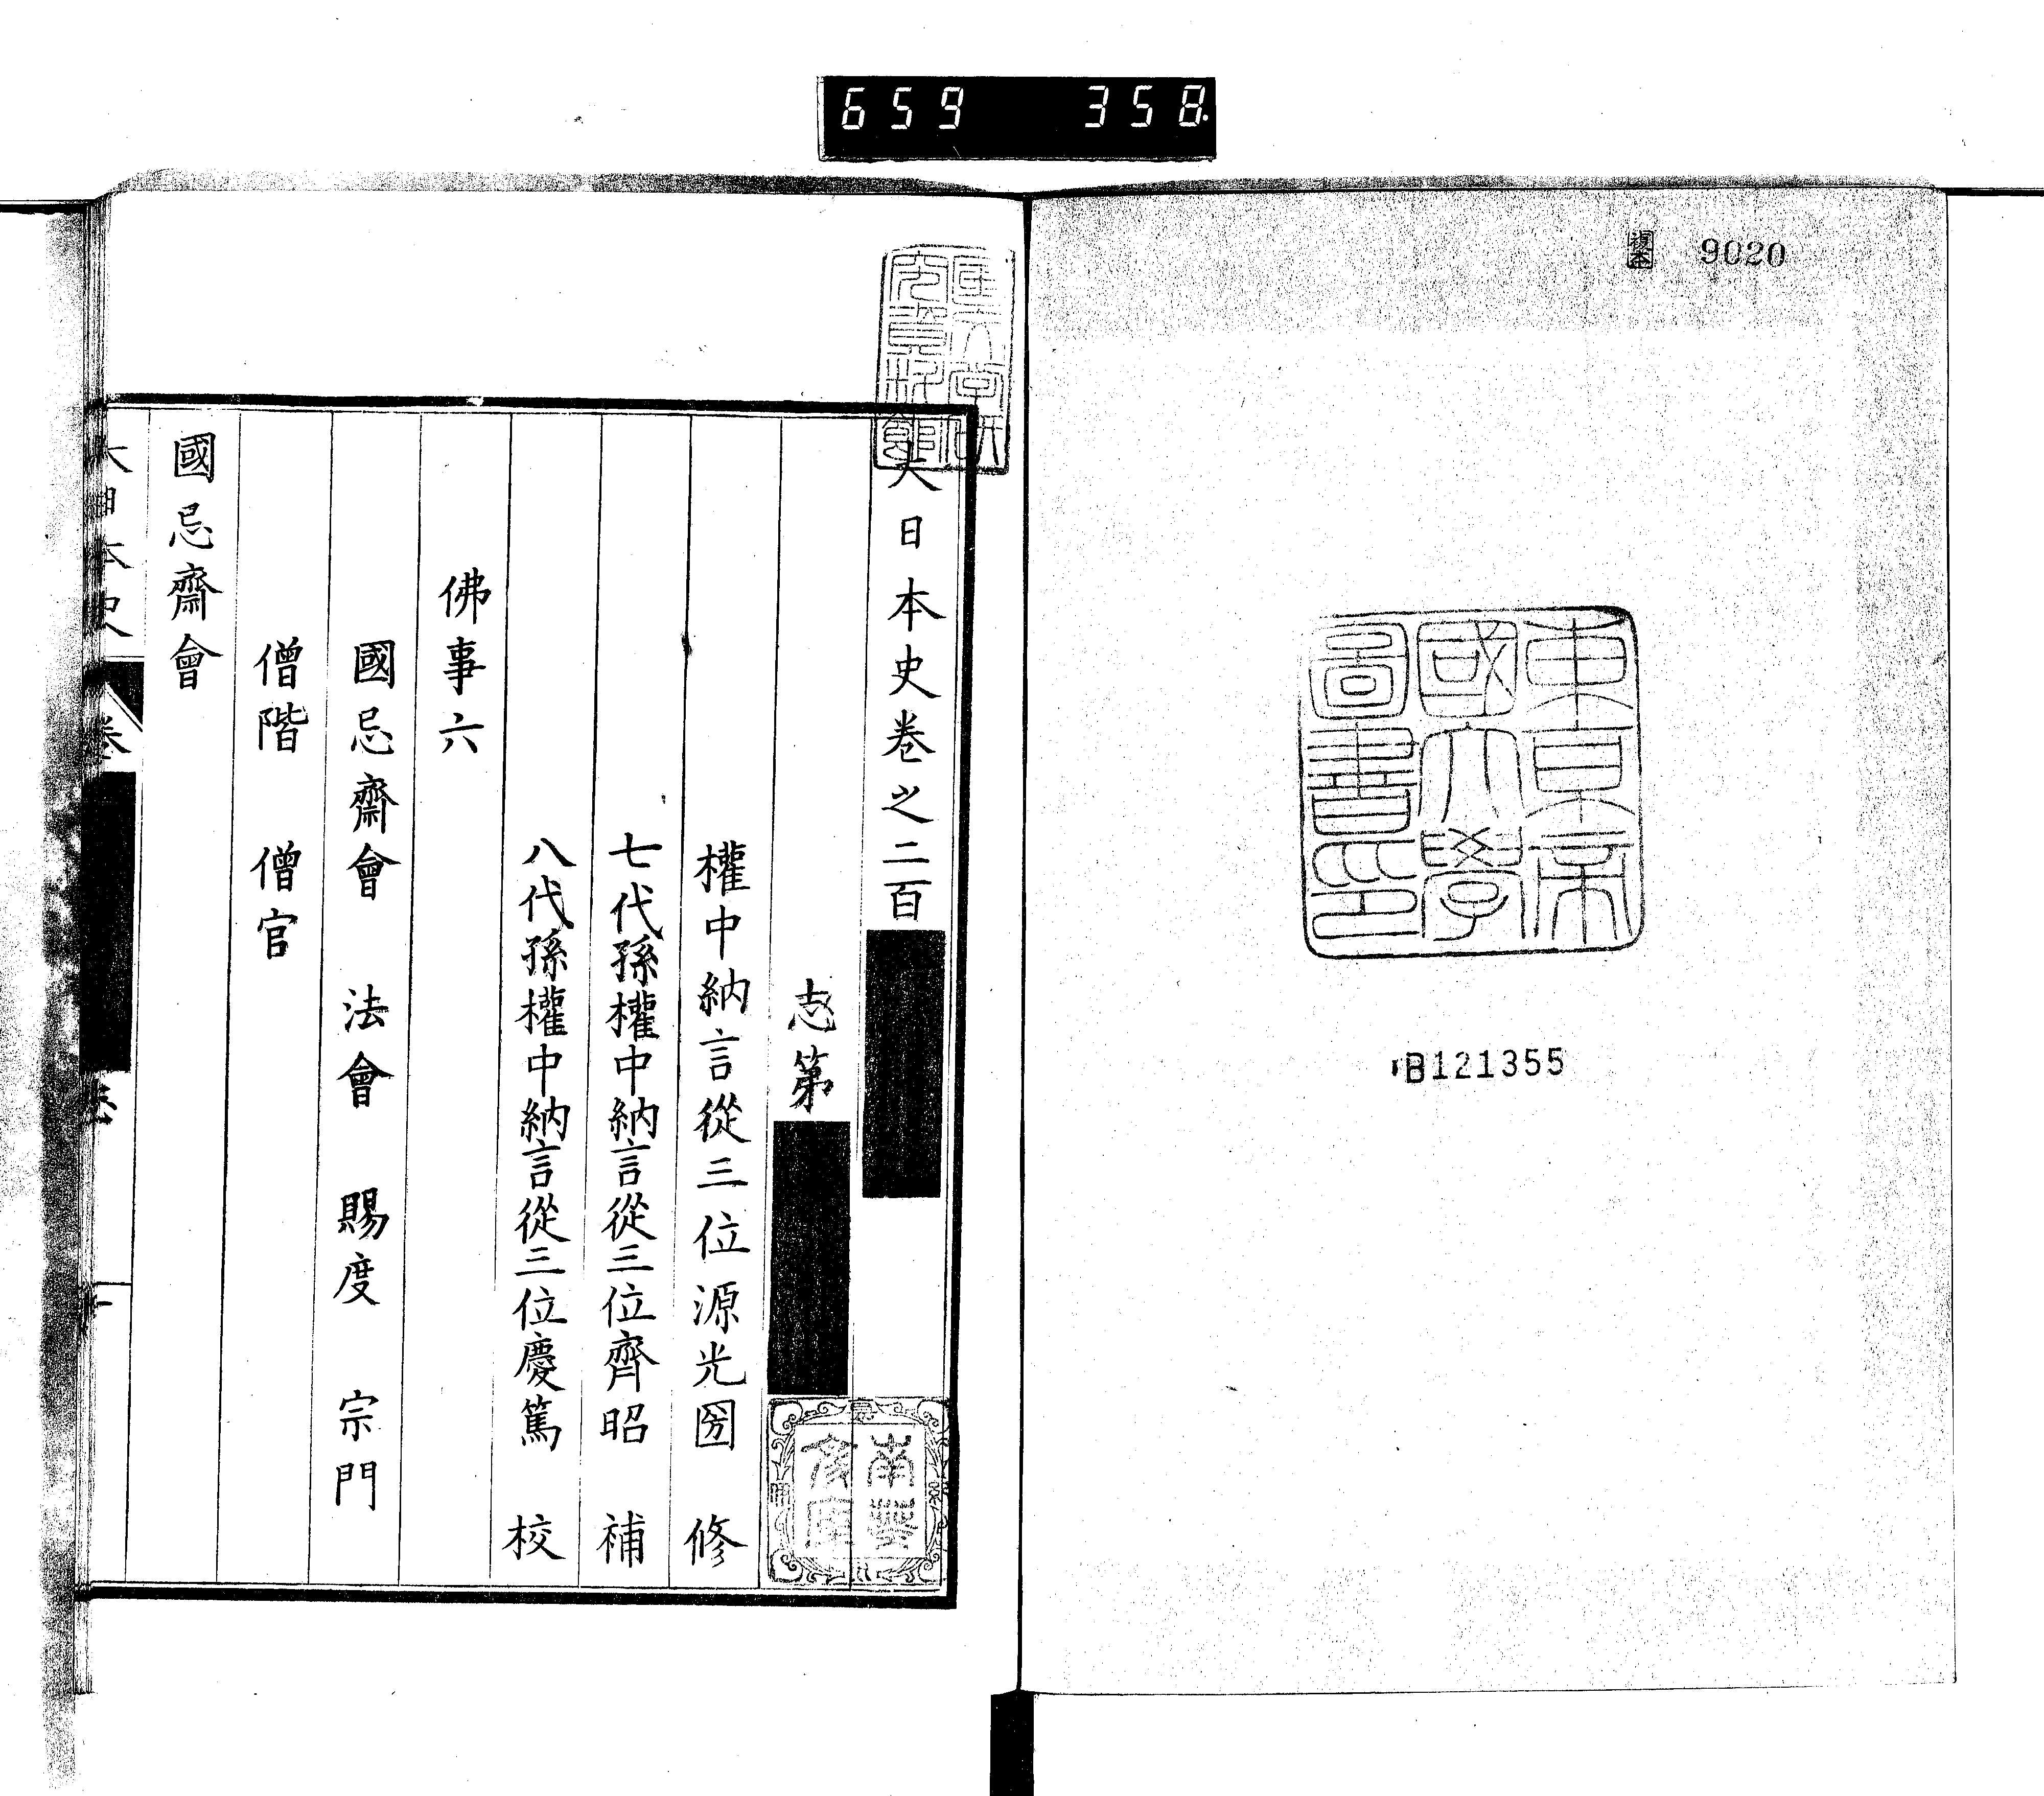 659 358
複本 9020
東京帝
國大學
圖書印
B121355
大日本史卷之二百
志第
權中納言從三位源光圀 修
七代孫權中納言從三位齊昭 補
八代孫權中納言從三位慶篤 校
佛事六
國忌齋會 法會 賜度 宗門
僧階 僧官
國忌齋會
大日本史 卷